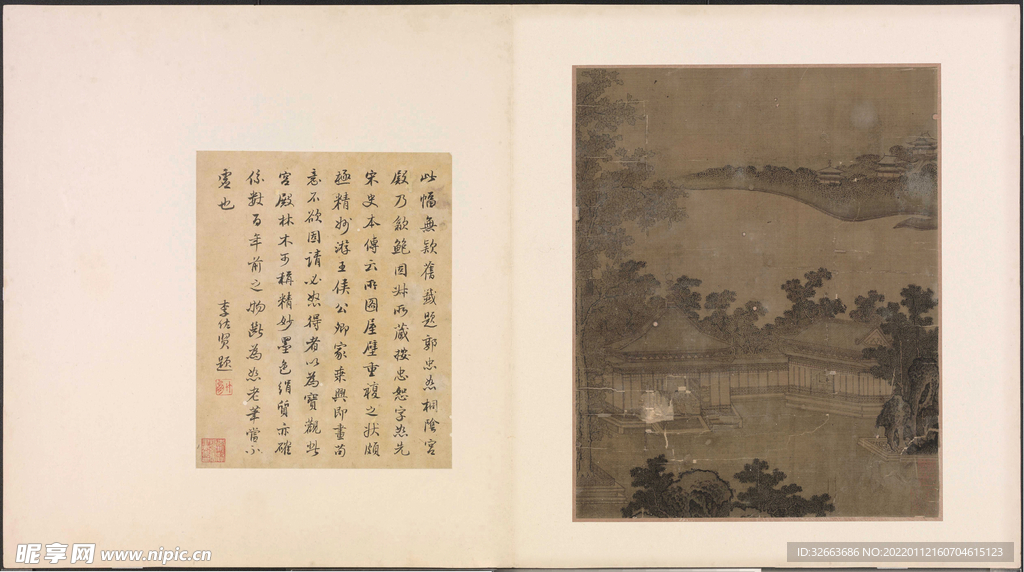 此幅無款舊籤題郭忠恕桐陰宮
殿乃歙鮑固叔所藏按忠恕字恕先
宋史本傳云所圖屋壁重複之狀頗
極精妙游王侯公卿家乘興即畫苟
意不欲固請必怒得者以為寶觀此
宮殿林木可稱精妙墨色絹質亦確
係數百年前之物斷為恕老筆當不
虛也
李佐賢題
昵享网 www.nipic.cn
ID:32663686 NO:20220112160704615123